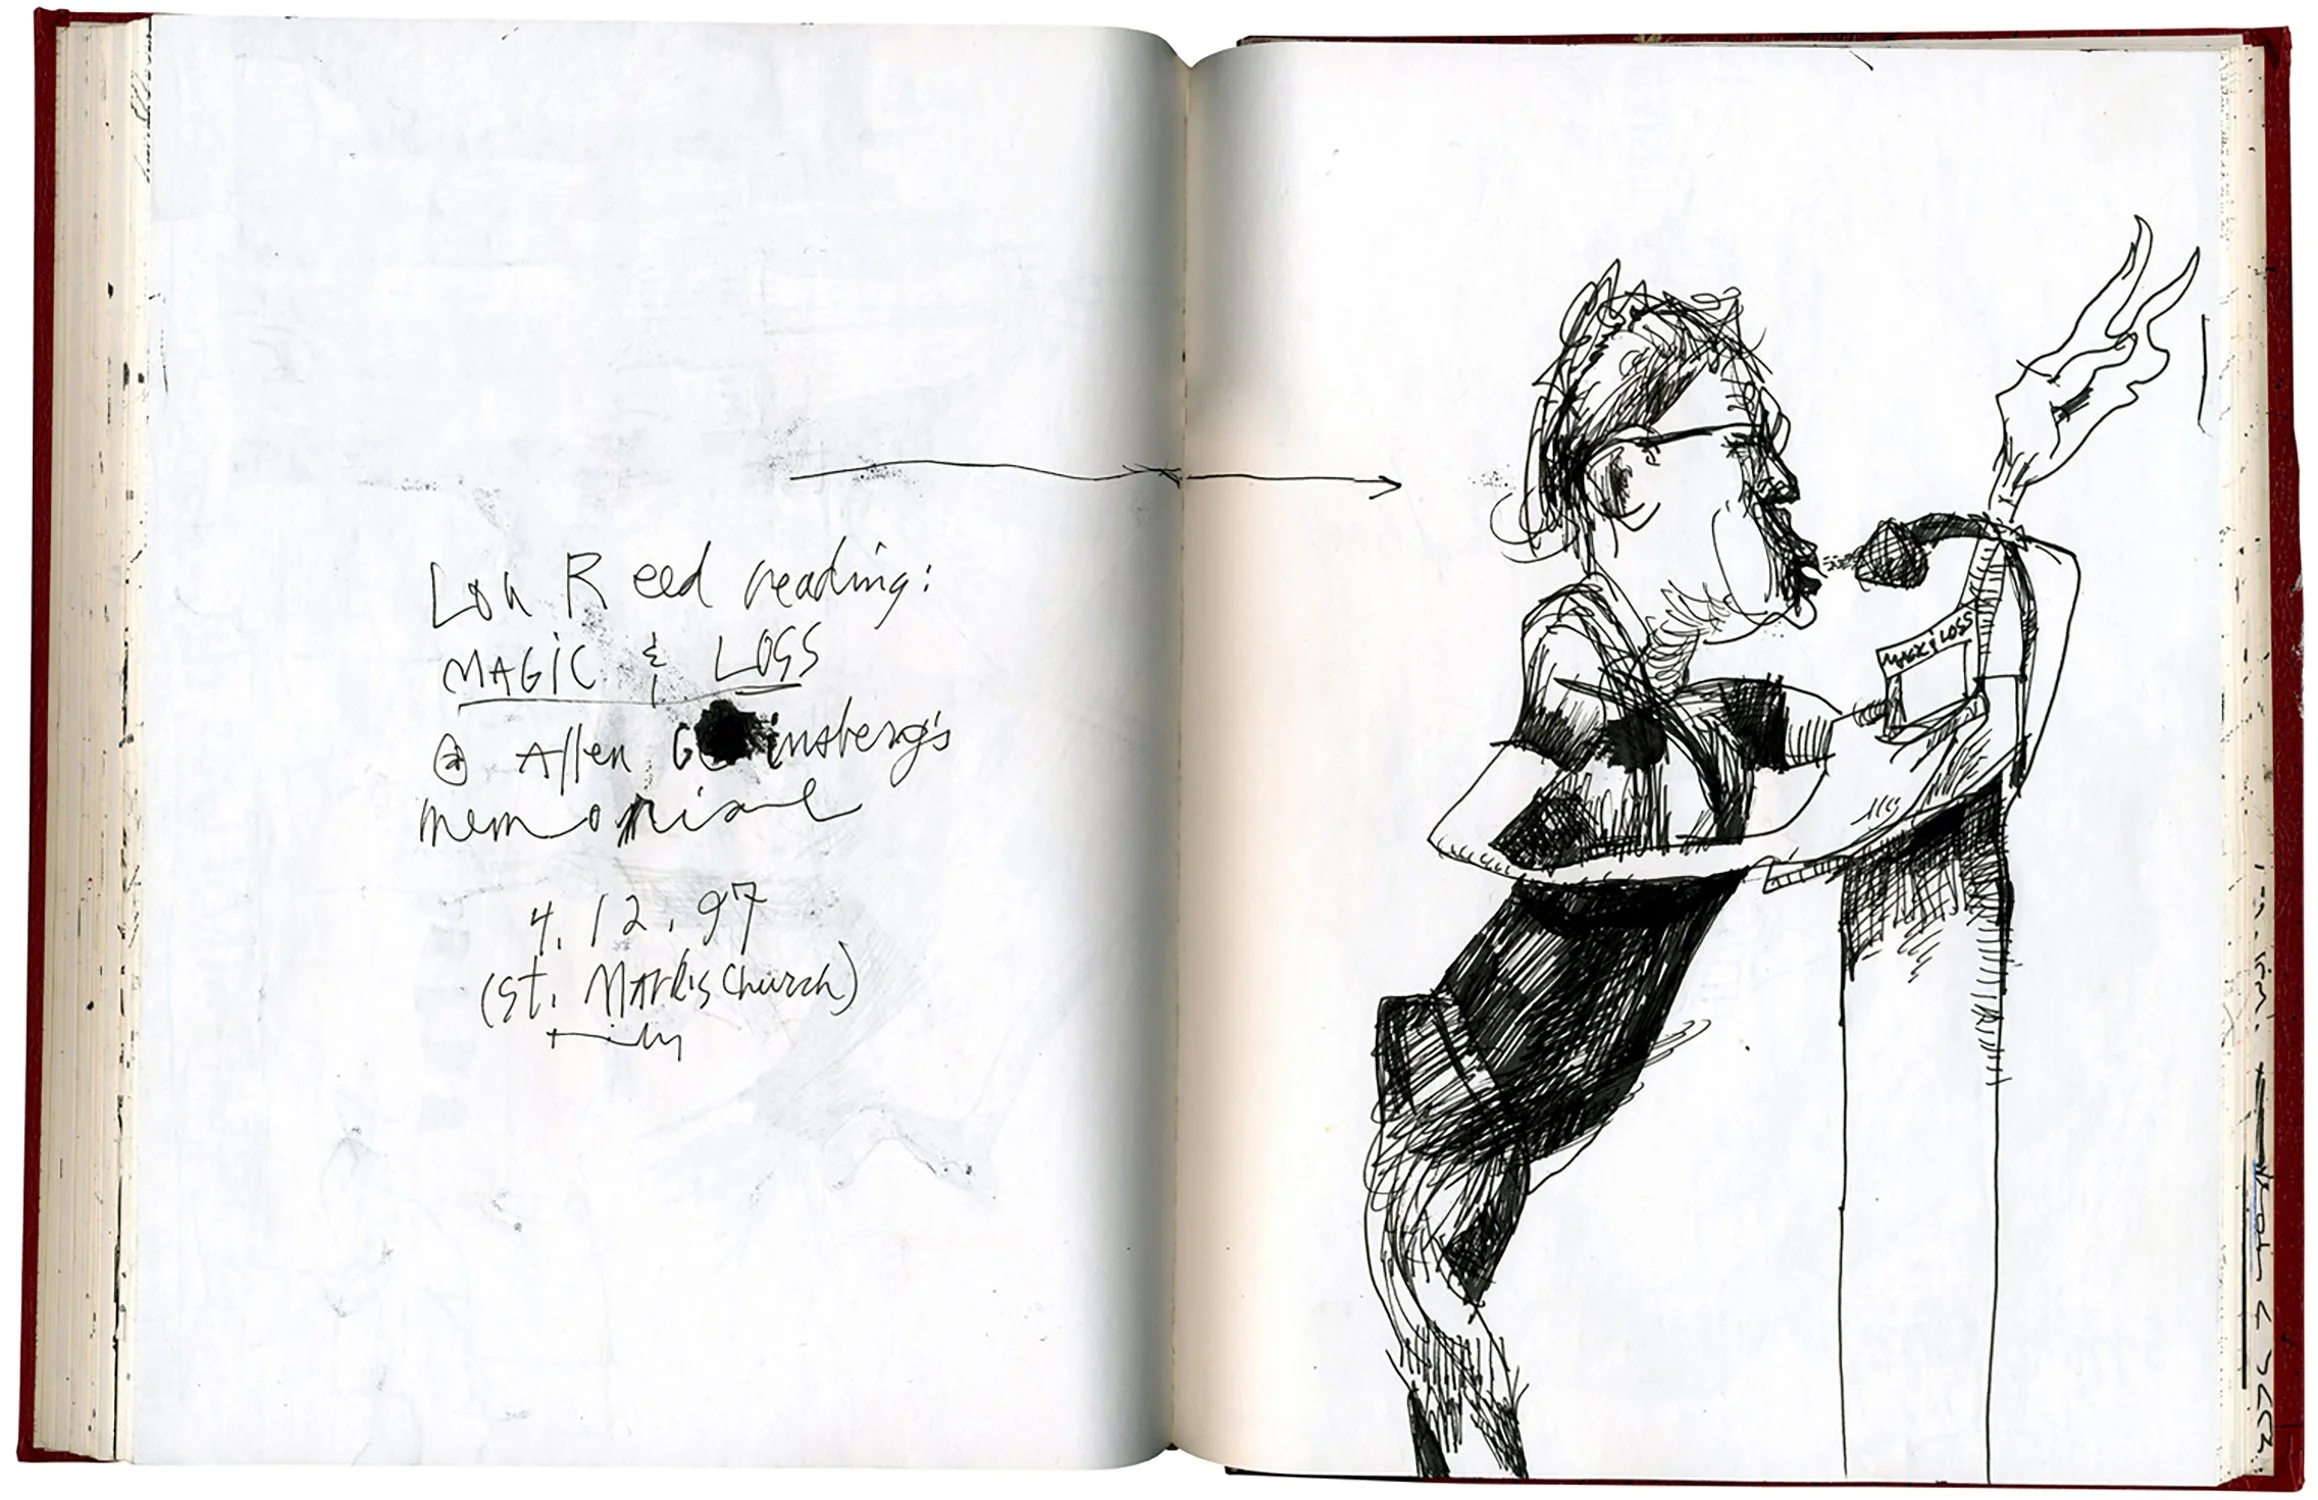 Lou Reed reading:
MAGIC & LOSS
@ Allen Ginsberg's
memorial
4.12.97
(St. Mark's Church)
MAGIC & LOSS